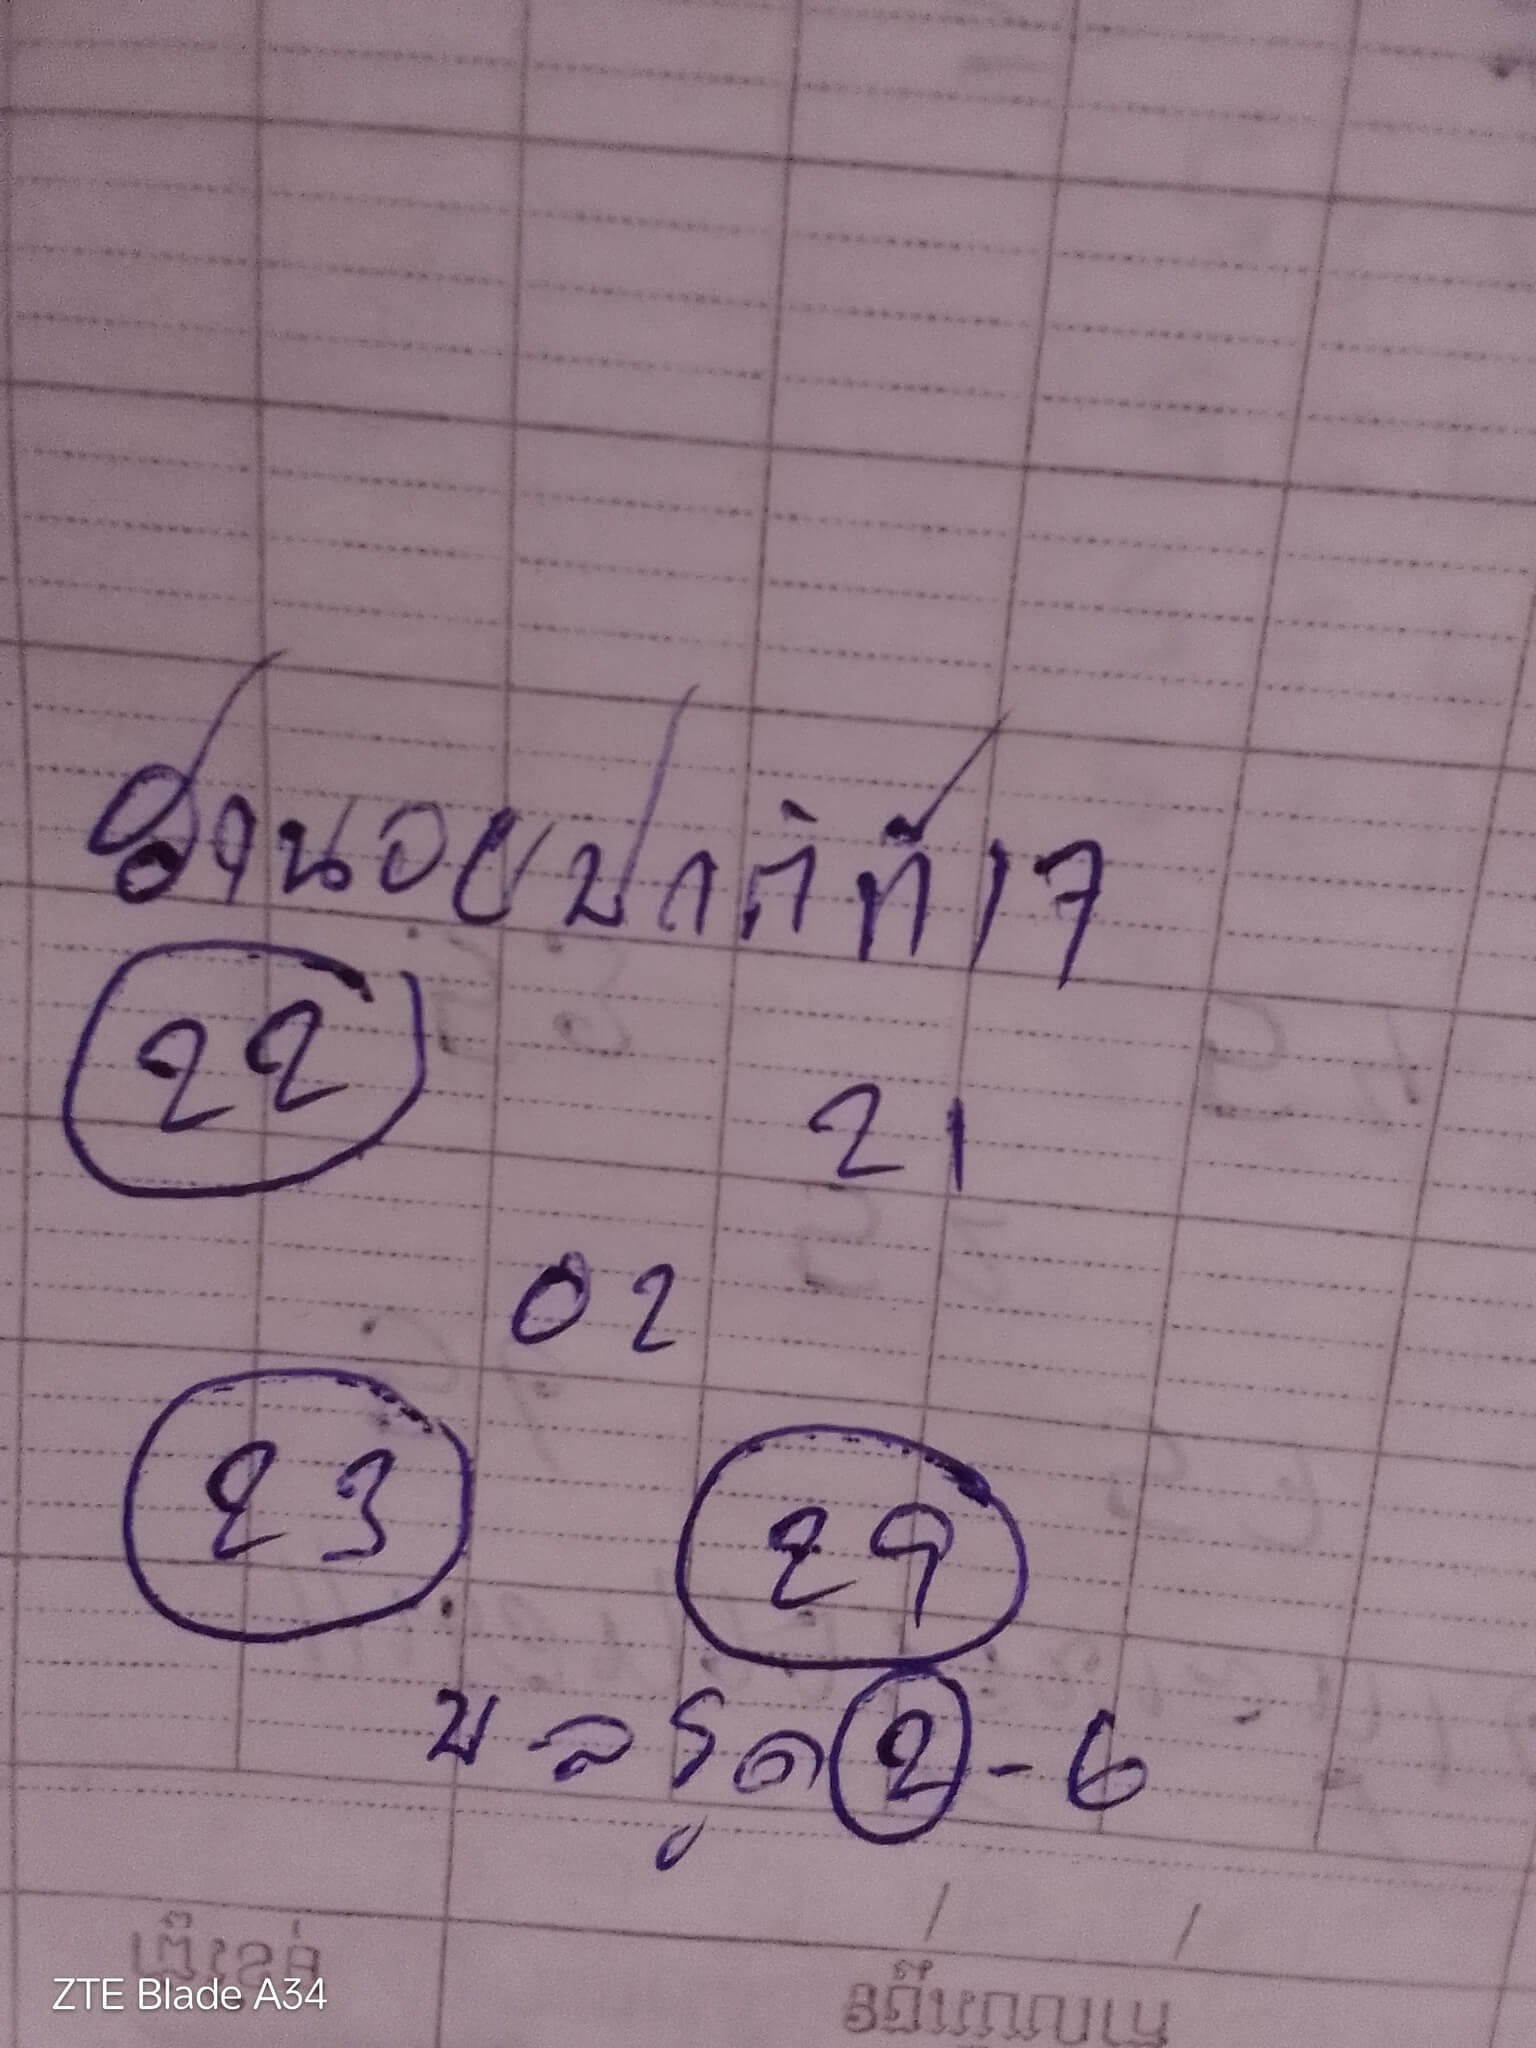 ฮานอยปกติที่17
22
21
02
23 29
รูด 2-6
ZTE Blade A34